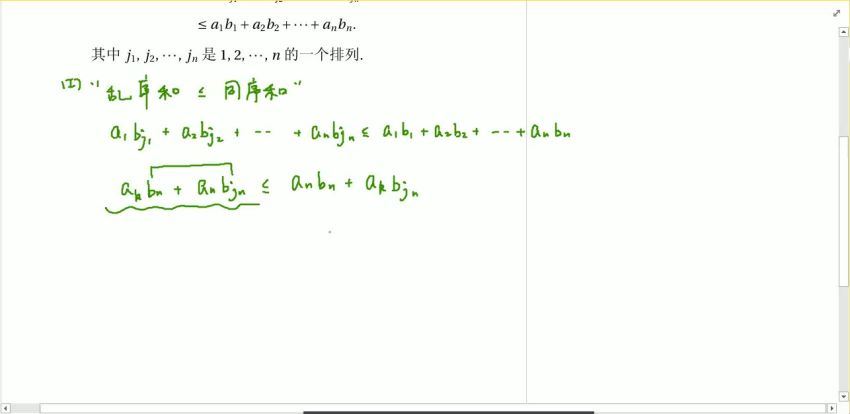 ≤ a₁b₁ + a₂b₂ + ⋯ + aₙbₙ.
其中 j₁, j₂, ⋯, jₙ 是 1, 2, ⋯, n 的一个排列.
(I) "乱序和 ≤ 同序和"
a₁b_{j₁} + a₂b_{j₂} + -- + aₙb_{jₙ} ≤ a₁b₁ + a₂b₂ + -- + aₙbₙ
a_k bₙ + aₙb_{jₙ} ≤ aₙbₙ + a_k b_{jₙ}